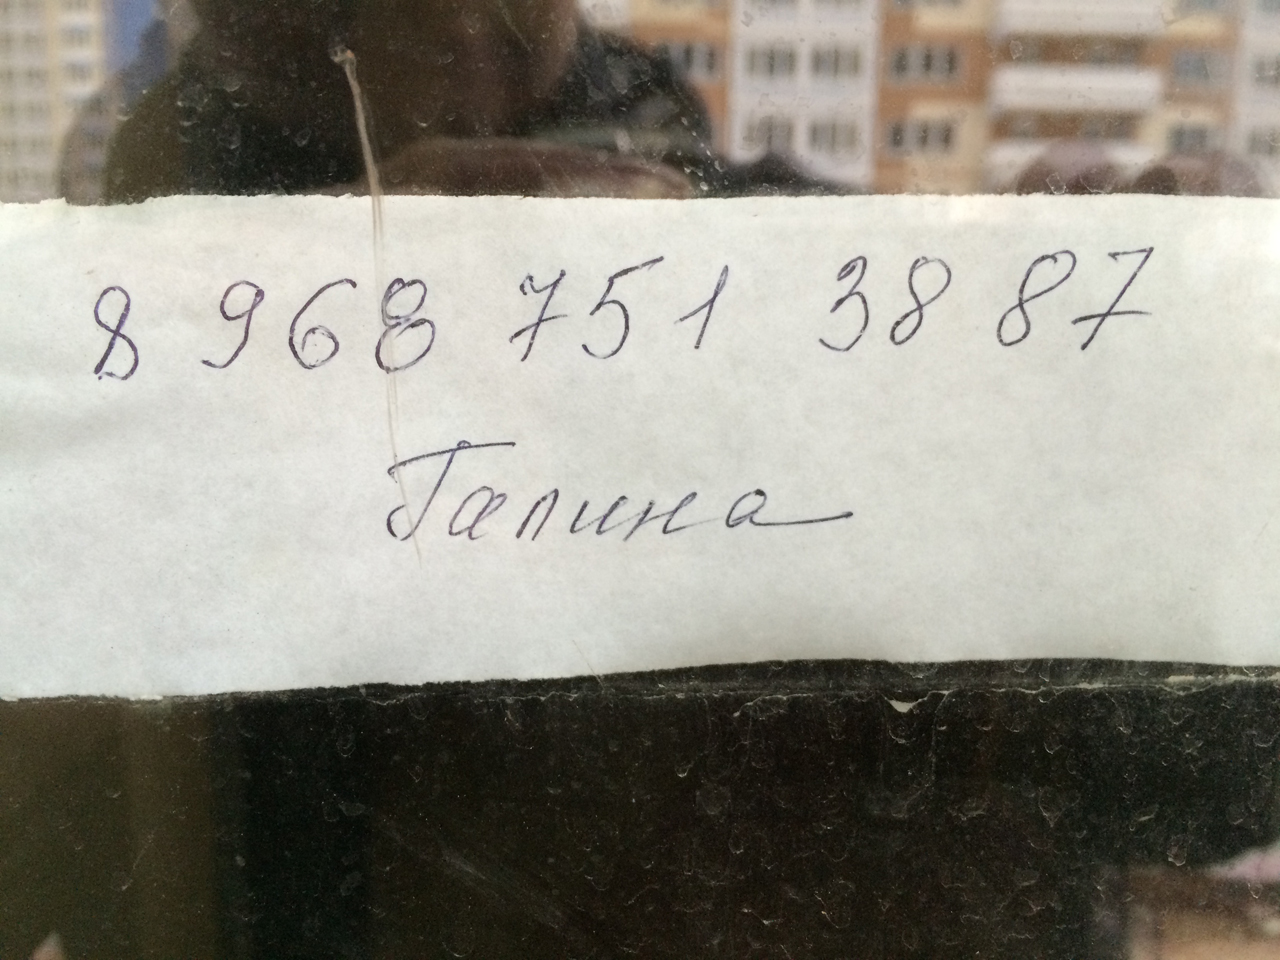 8 968 751 38 87
Галина